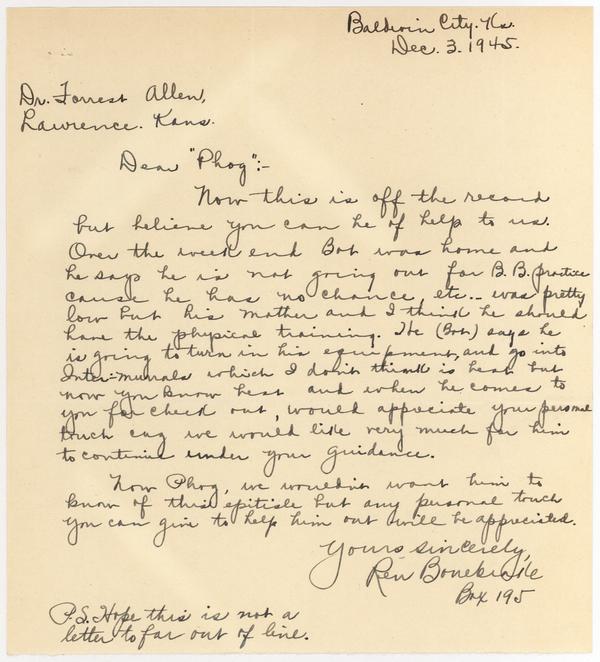 Baldwin City. Ks.
Dec. 3. 1945.
Dr. Forrest Allen,
Lawrence. Kans.
Dear "Phog":-
Now this is off the record
but believe you can be of help to us.
Over the week end Bob was home and
he says he is not going out for B.B. practice
cause he has no chance, etc.. was pretty
low but his mother and I think he should
have the physical training. He (Bob) says he
is going to turn in his equipment, and go into
Inter-murals which I don't think is best but
now you know best and when he comes to
you for check out, would appreciate your personal
touch cuz we would like very much for him
to continue under your guidance.
Now Phog, we wouldn't want him to
know of this epitisle but any personal touch
you can give to help him out will be appreciated.
Yours sincerely,
Ren Bonebrake
Box 195
P.S. Hope this is not a
letter to far out of line.